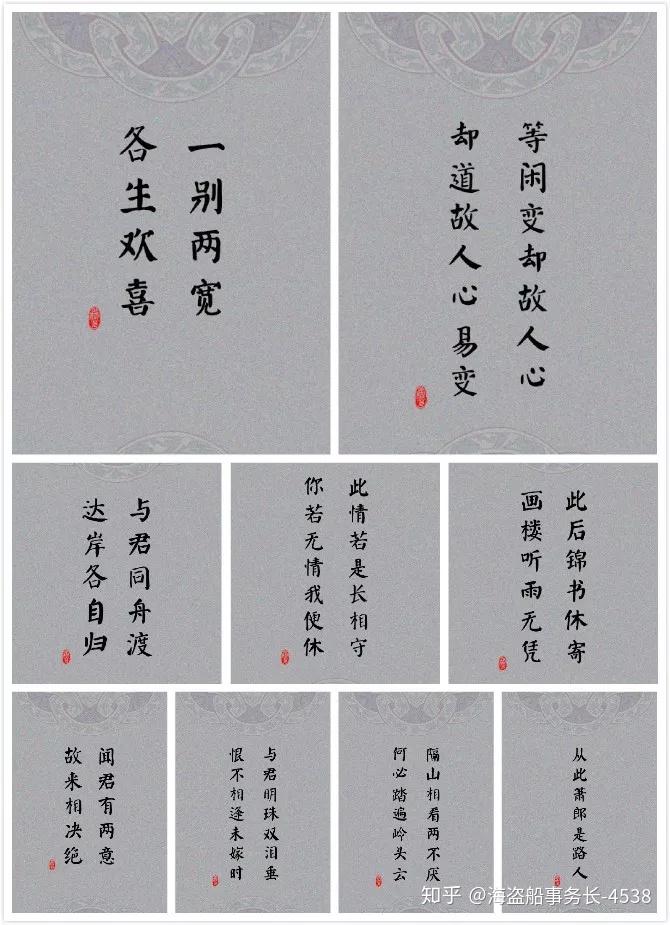 一别两宽
各生欢喜
等闲变却故人心
却道故人心易变
与君同舟渡
达岸各自归
此情若是长相守
你若无情我便休
此后锦书休寄
画楼听雨无凭
闻君有两意
故来相决绝
与君明珠双泪垂
恨不相逢未嫁时
隔山相看两不厌
何必踏遍岭头云
从此萧郎是路人
知乎 @海盗船事务长-4538